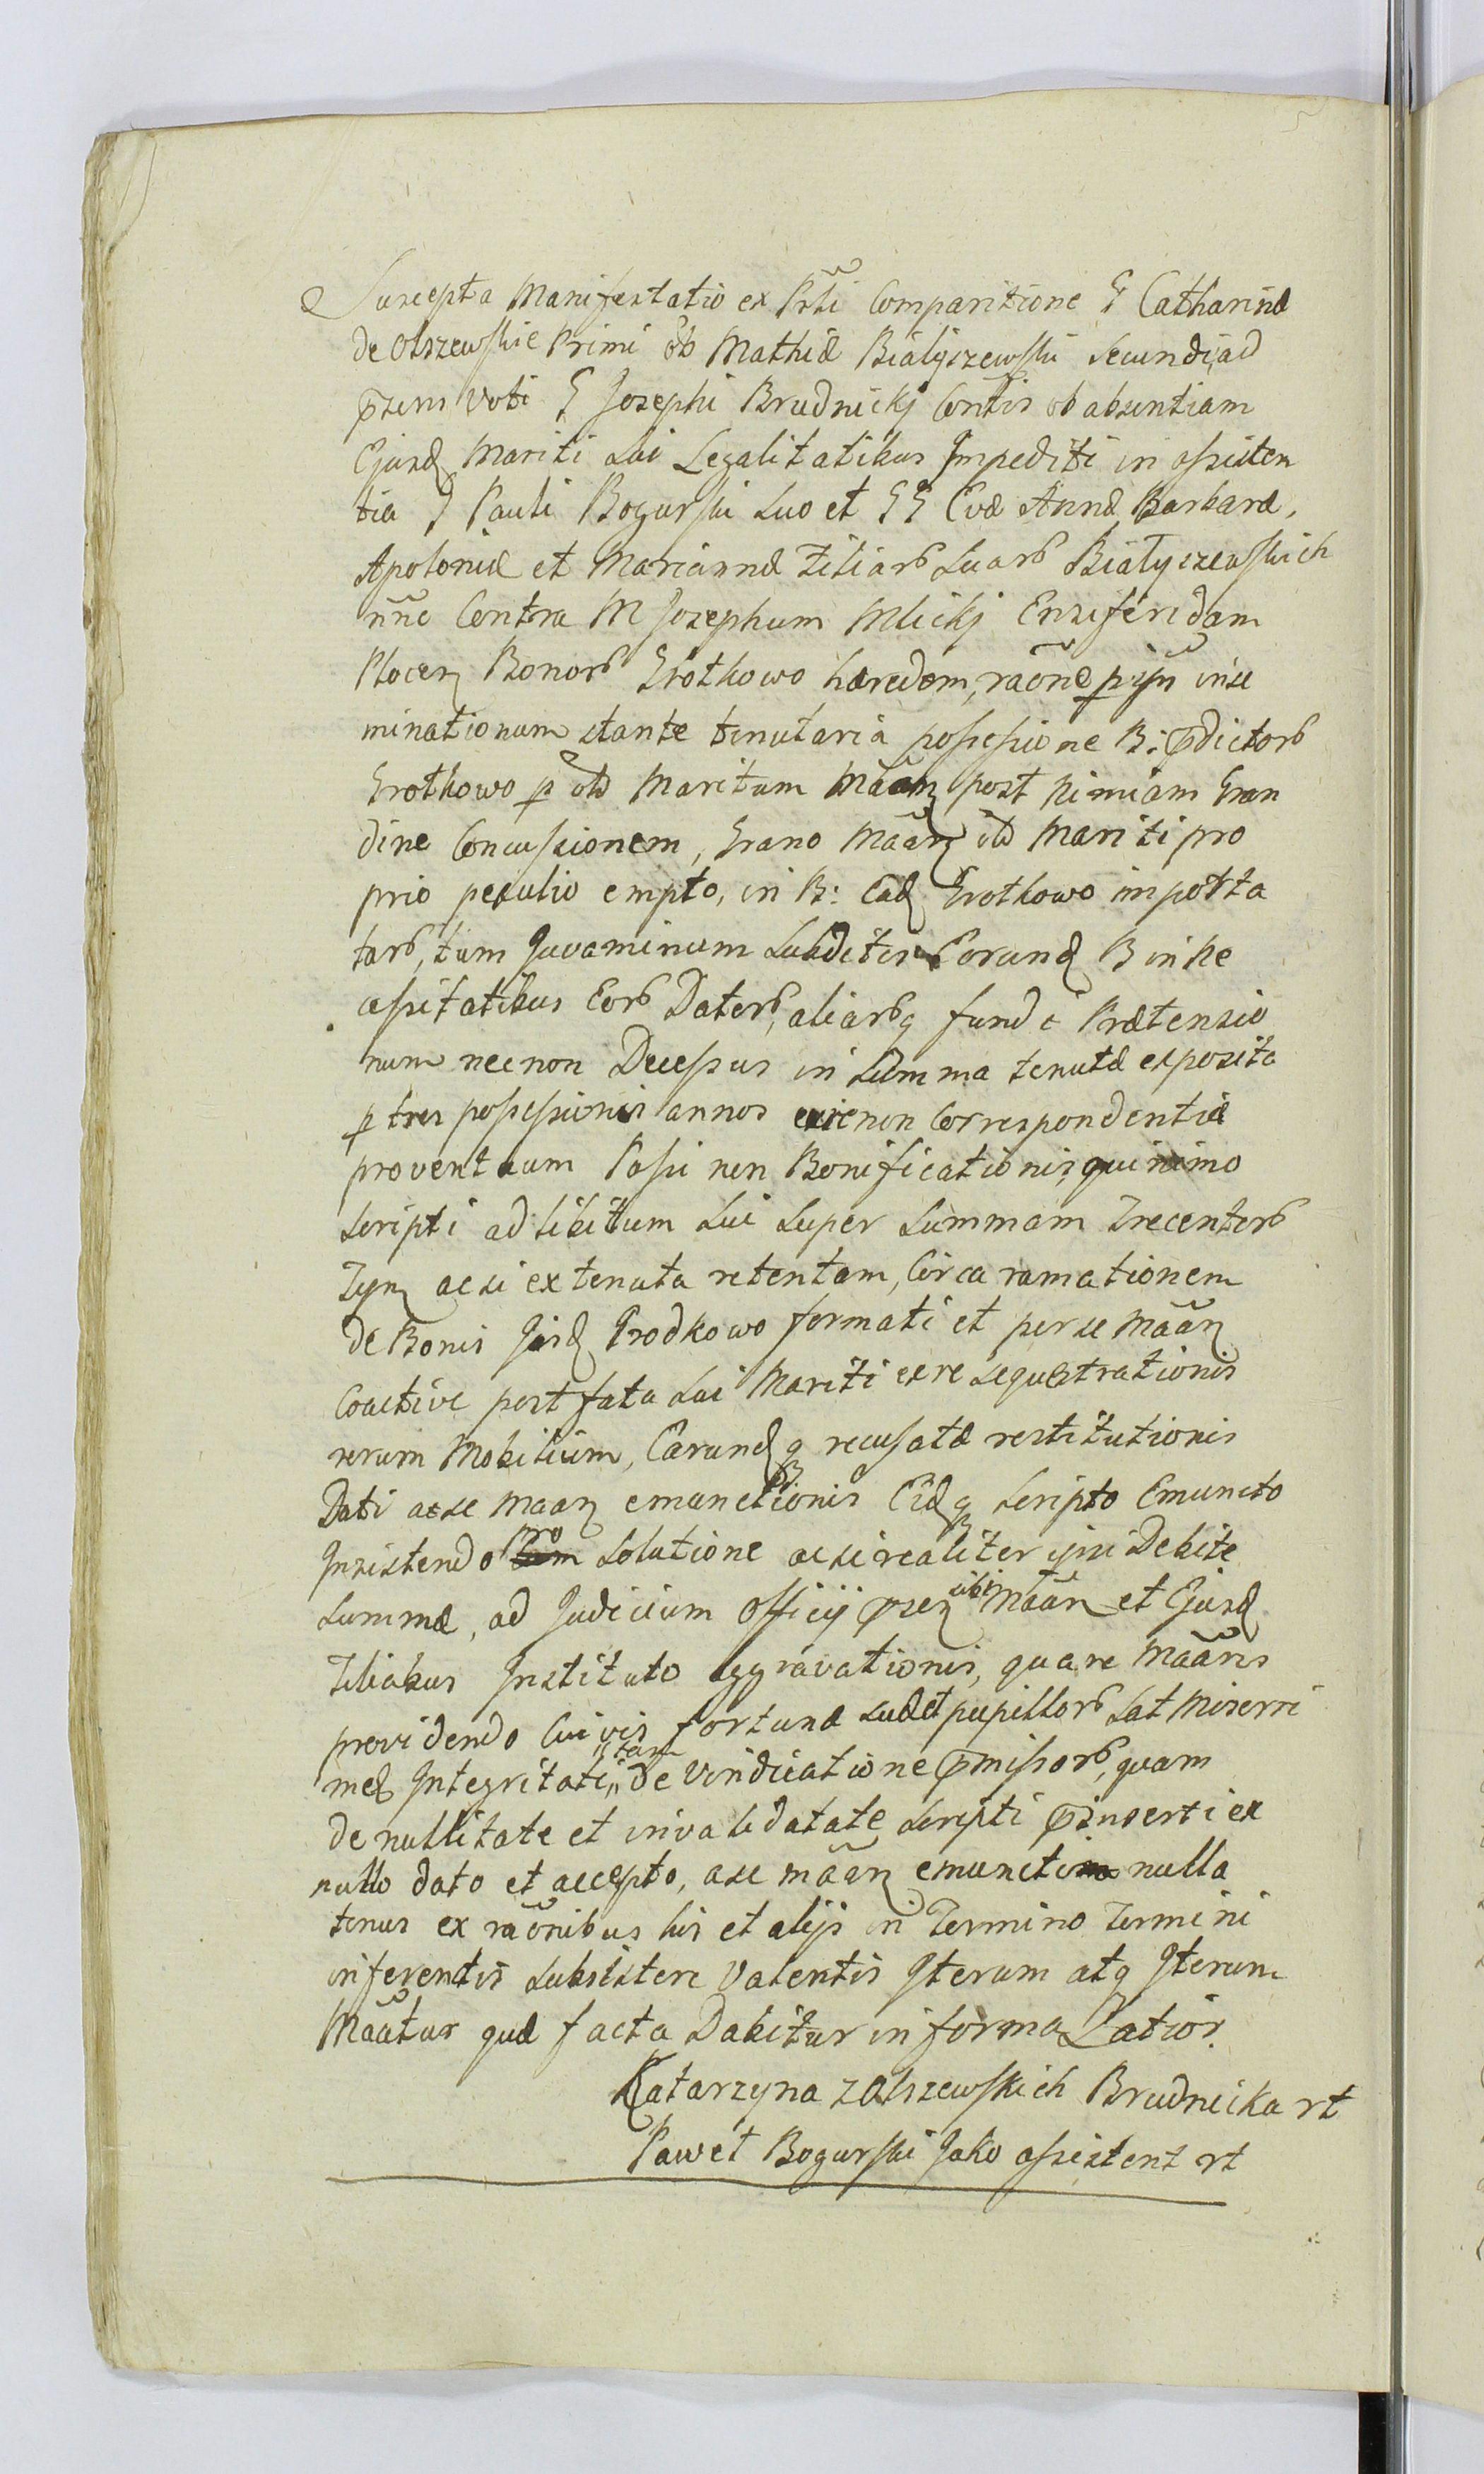 Suscepta Manifestatio ex Prsti Comparitione G Catharinæ
de Olszewskie Primi olb Mathiæ Białyszewski Secundi, ad
przens Voti G Josephi Brudnickj Contis ob absentiam
Ejusd Mariti Sui Legalitatibus Impediti in assisten
tia G Pauli Bogurski Suo et GG Evæ Annæ Barbaræ,
Apoloniæ et Mariannæ Filiarb Suarb Białyszewskich
nne Contra M Josephum Mlickj Ensiferidam
Plocen Bonorb Srotkowo hæredem, raone pijn inse
minationum stante tenutaria possessione B: pdictorb
Grotkowo p olb Maritum Maan post nimiam Gran
dine Concussionem, Grano Maan olb Mariti pro
prio peculio empto, in B: Ead Grotkowo importa
tarb, tum Juvaminum Subditis Eorund B in ne
cessitatibus Eorb Datorb, aliarbq fundi Prætensio
num necnon Decessus in Summa tenutæ exposita
p tres possessionis annos non Correspondentiæ
proventuum Passi non Bonificationis, quinimo
Scripti ad libitum Sui Super Summam Trecentorb
Tyn acsi ex tenuta retentam, Circa ramationem
de Bonis Jisd Grodkowo formati et per se Maan
Coactive post fata Sui Mariti ex re Sequestrationis
rerum Mobilium, Earundq recusatæ restitutionis
Dati ac se Maan emunctionis Eidq Scripto Emuncto
Insistendo pro Solutione acsi realiter ipsi Debite
Summæ, ad Judicium Officij przen sibi Maan et Ejusd
Filiabus Instituto aggravationis, quare Maans
providendo Cuivis fortunæ Suæ et pupillorb Sat Miserri
mæ Integritati, tam de Vindicatione pmissorb, quam
de nullitate et invalidatate Scripti pinserti ex
nullo dato et accepto, a se maan emuncti nulla
tenus ex raonibus his et alijs in Termino Termini
inferentis Subsistere Valentis Iterum atq Iterum
Maatur quæ facta Dabitur in forma Latior.
Katarzyna z Olszewskich Brudnicka rt
Paweł Bogurski Jako assistent rt